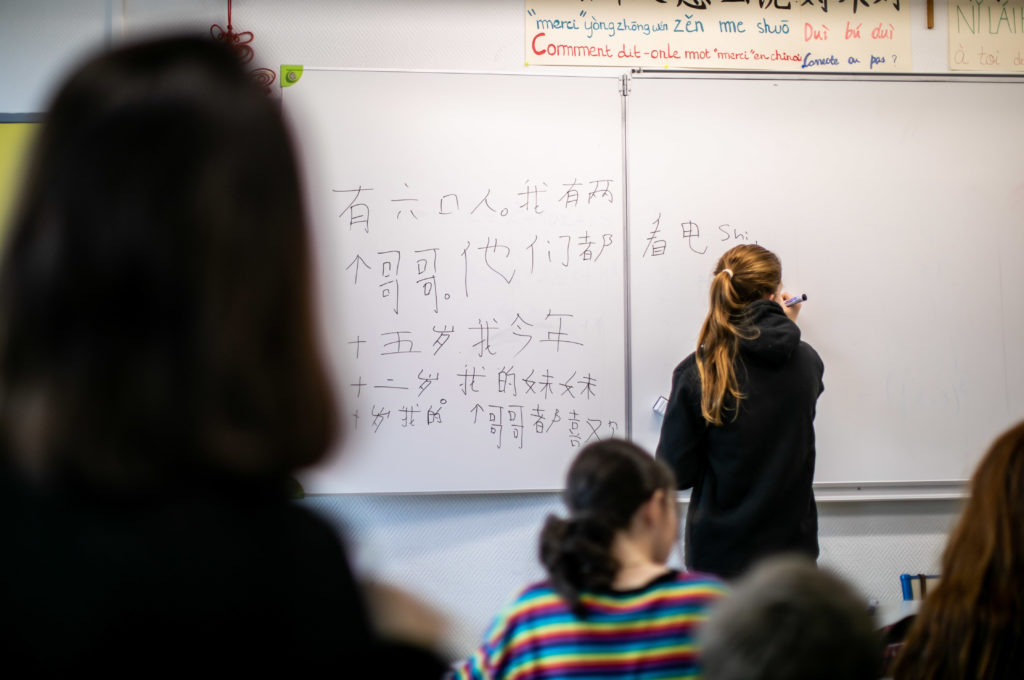 "merci" yòngzhōngwén zěn me shuō Duì bú duì
Comment dit-on le mot "merci" en chinois Correcte ou pas ?
NǏ LÁI
à toi
有六口人。我有两
个哥哥。他们都
十五岁我今年
十二岁。我的妹妹
十岁我的 个哥哥都喜
看电 Shi